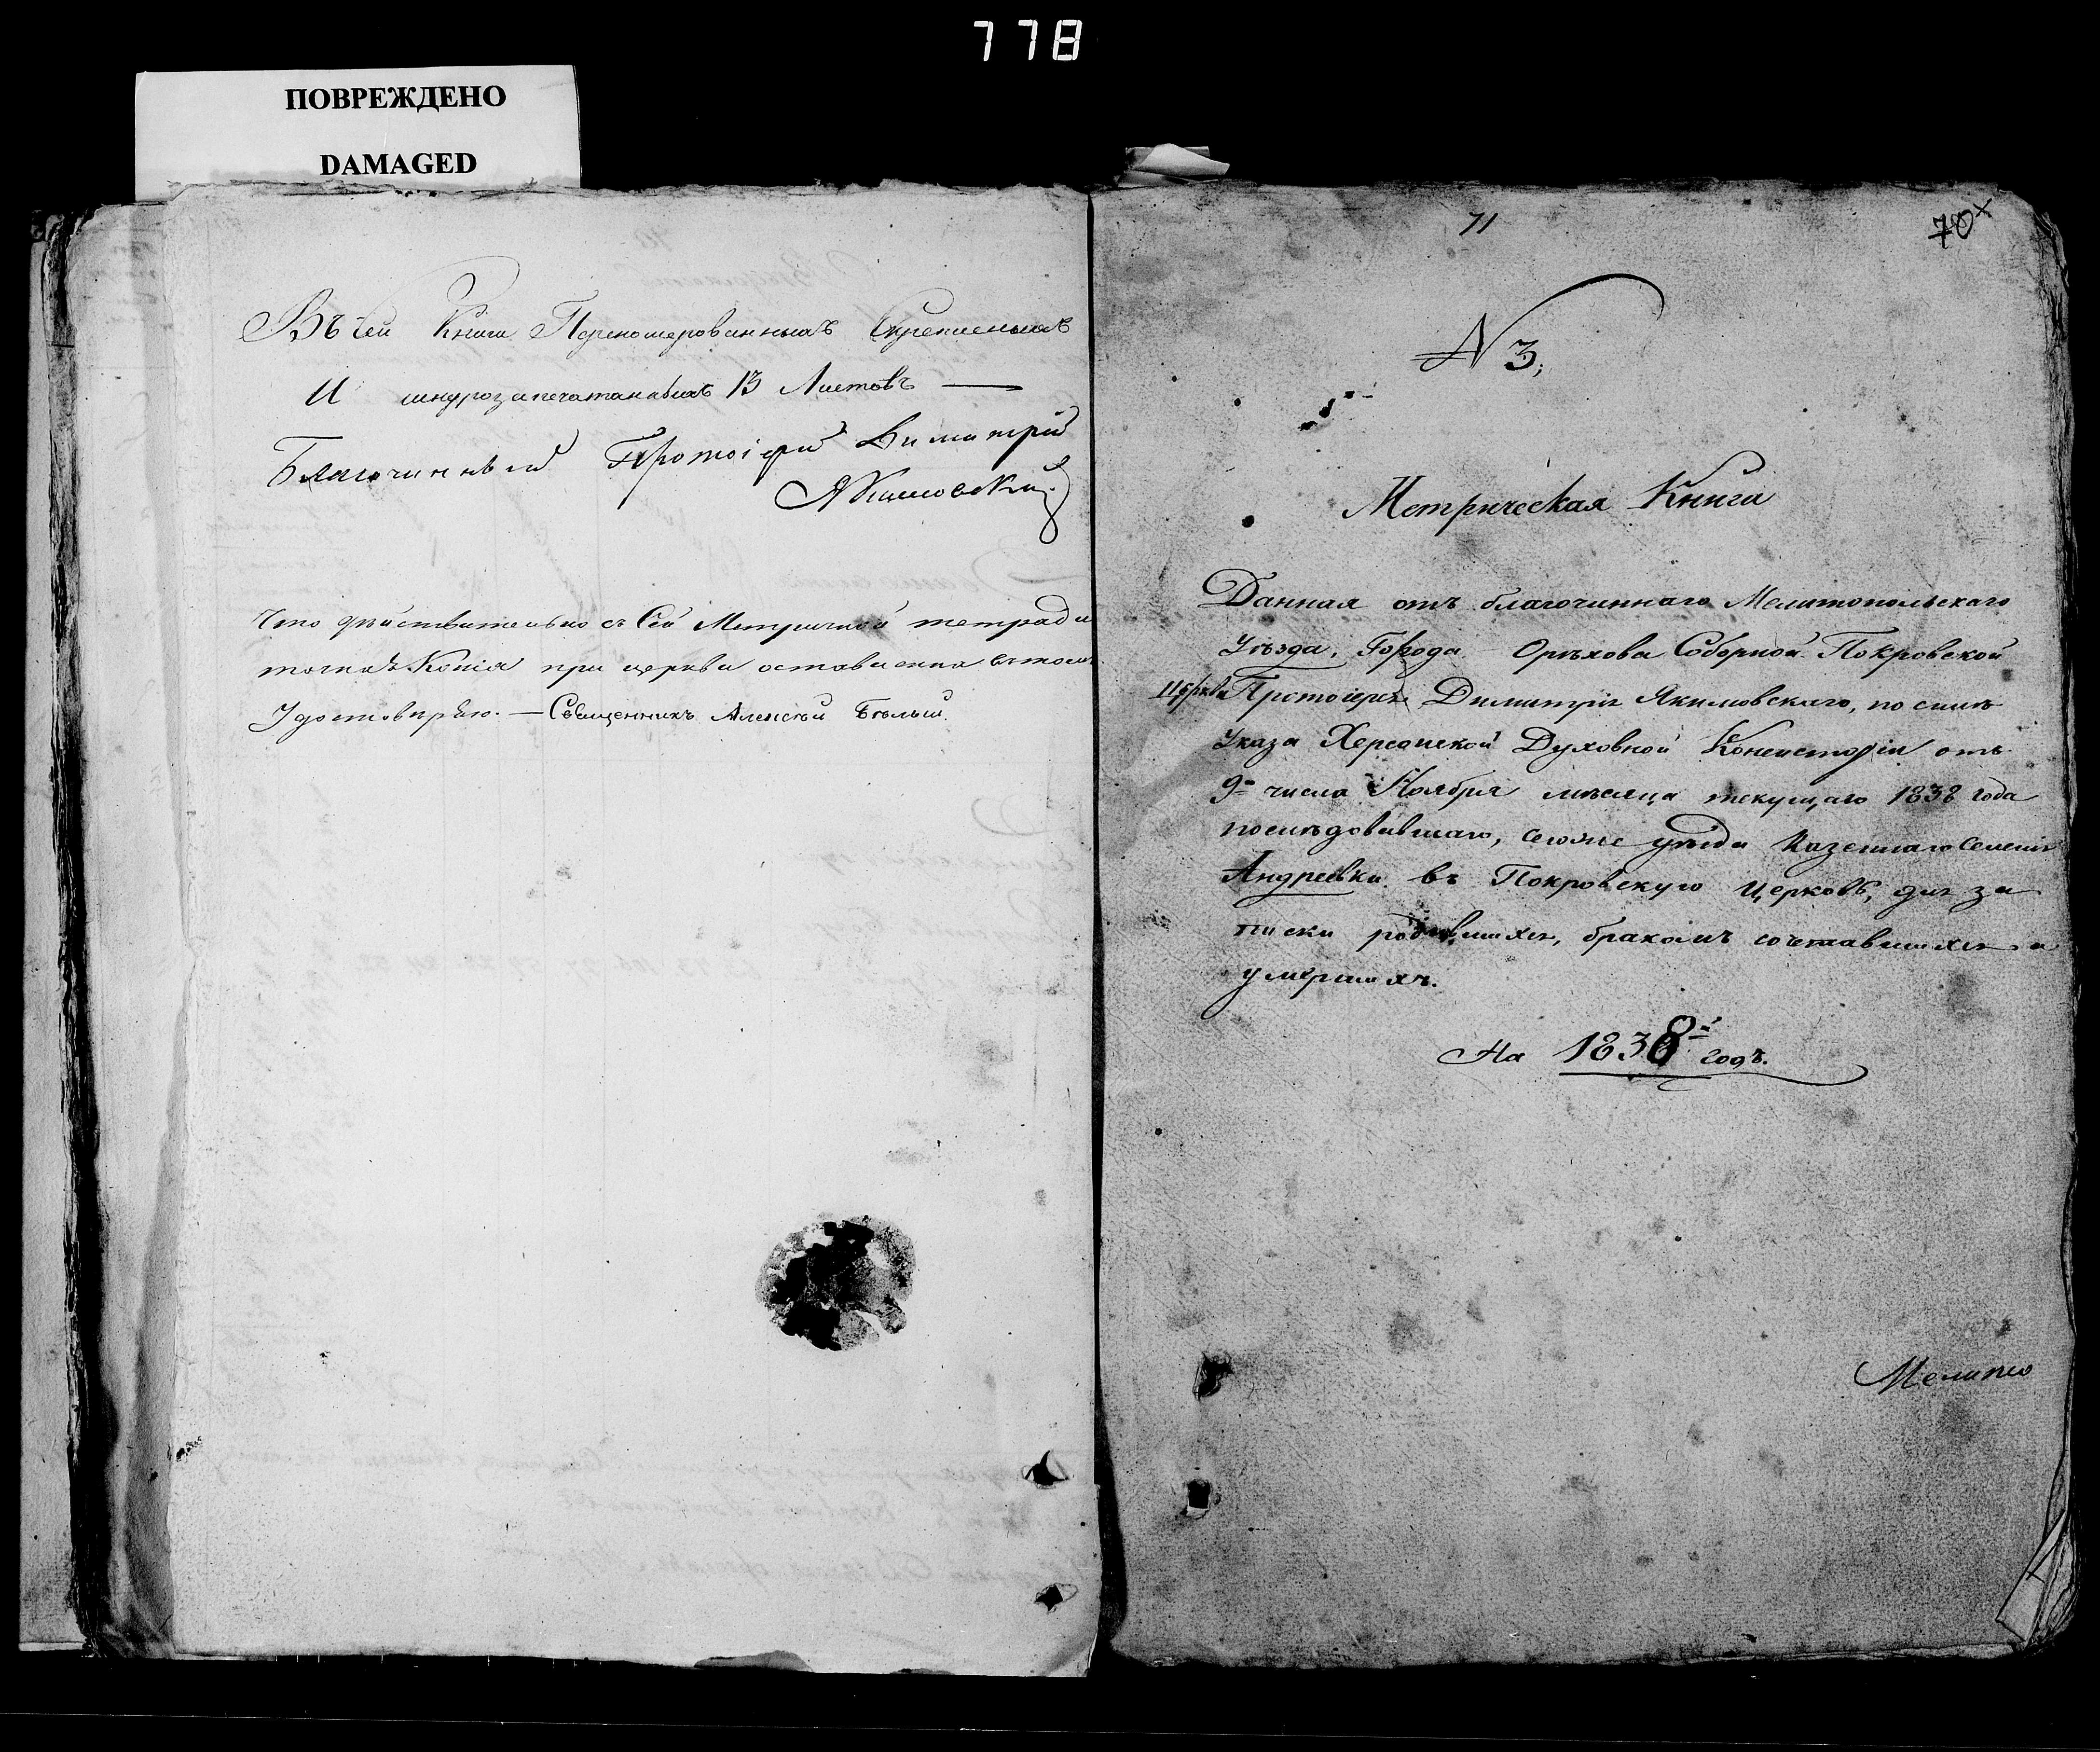 778
ПОВРЕЖДЕНО
DAMAGED
Въ сей Книги Перномерованныхъ Скрепленыхъ
И шнурозапечатаныхъ 13 Листовъ —
Благочинный Протоіерей Димитрій
Якимовский
Что действительно съ Сей Метричной тетради
точная Копія при церкви оставлена въ томъ
Удостоверяю. — Священникъ Алексѣй Бѣлый.
71
70
N 3,
Метрическая Книга
Данная отъ благочиннаго Мелитопольскаго
Уѣзда, Города Орѣхова Соборной Покровской
Церкви Протоіерея Димитрія Якимовскаго, по силѣ
Указа Херсонской Духовной Консисторіи отъ
9 числа Ноября мѣсяца текущаго 1838 года
последовавшаго, сегоже уѣзда Казеннаго Селенія
Андреевки въ Покровскую Церковь, для за
писки родившихся, бракомъ сочетавшихся и
умершихъ.
На 1838й годъ.
Мелито